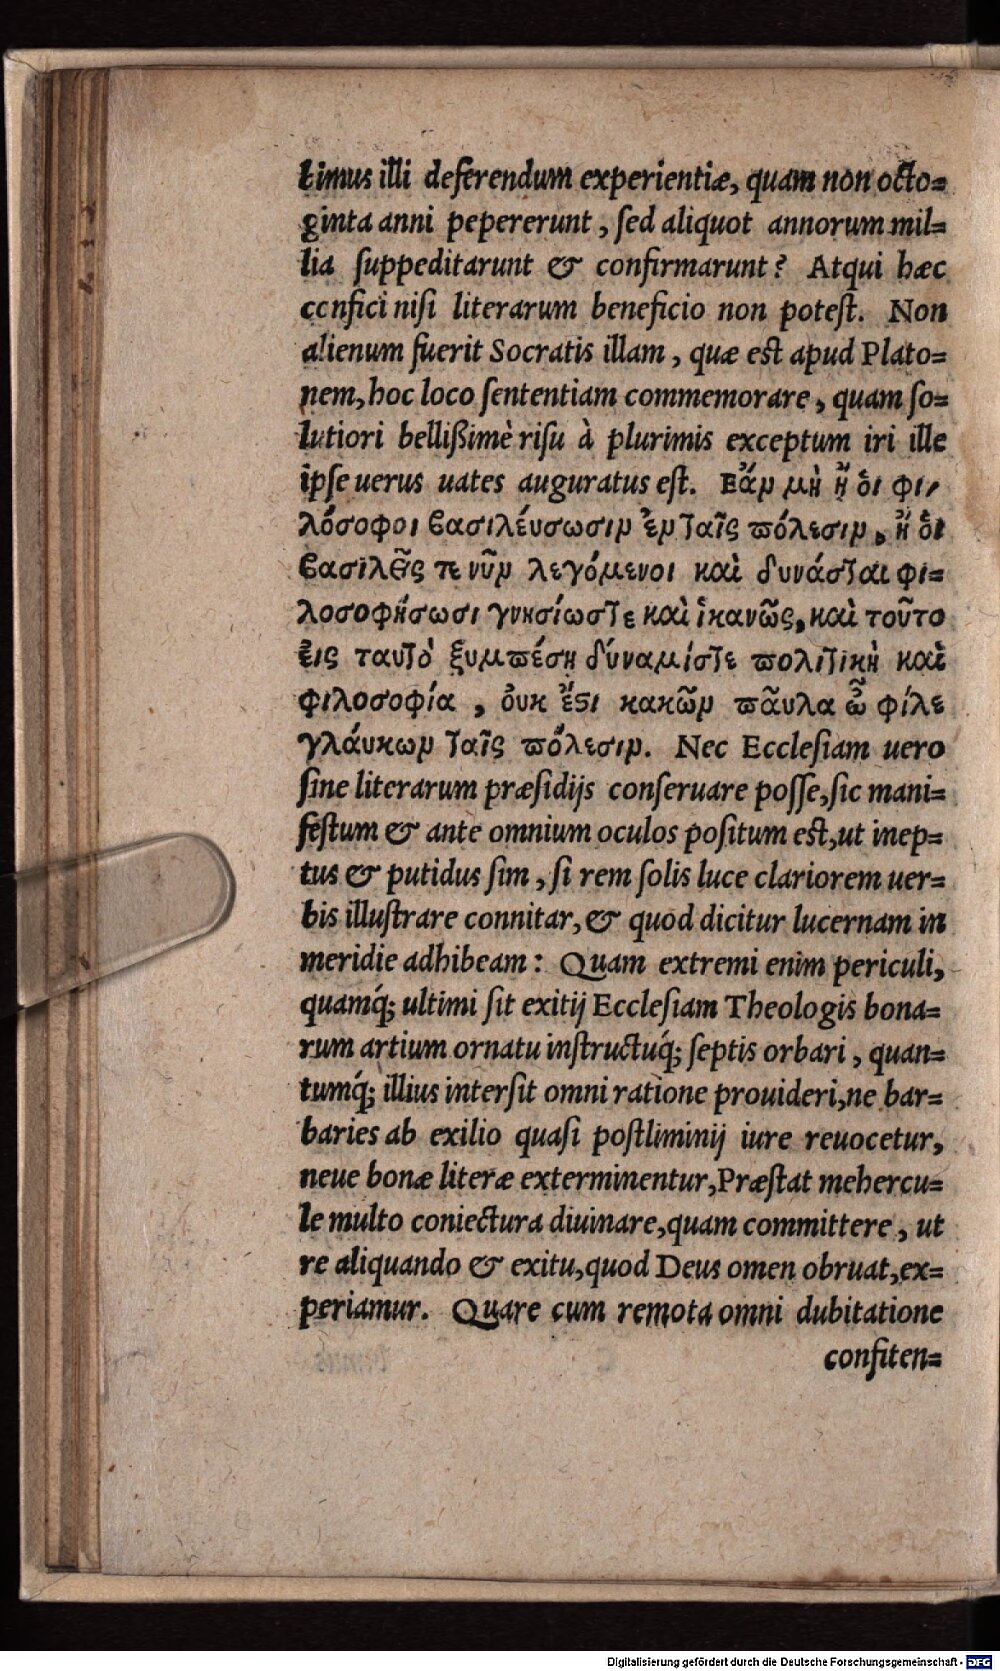 timus illi deferendum experientiæ, quam non octo=
ginta anni pepererunt, sed aliquot annorum mil=
lia suppeditarunt & confirmarunt? Atqui hæc
confici nisi literarum beneficio non potest. Non
alienum fuerit Socratis illam, quæ est apud Plato=
nem, hoc loco sententiam commemorare, quam so=
lutiori bellißimè risu à plurimis exceptum iri ille
ipse uerus uates auguratus est. Εἄν μὴ ἢ ὁι φι-
λόσοφοι βασιλέυσωσιν ἐν ταῖς πόλεσιν, ἢ ὁι
βασιλεῖς τε νῦν λεγόμενοι καὶ δυνάσται φι=
λοσοφήσωσι γνησίωστε καὶ ἱκανῶς, καὶ τοῦτο
ἐις ταυτὸ ξυμπέση δύναμίστε πολιτικὴ καὶ
φιλοσοφία, ὀυκ ἔστι κακῶν παῦλα ὦ φίλε
γλάυκων ταῖς πόλεσιν. Nec Ecclesiam uero
sine literarum præsidijs conseruare posse, sic mani=
festum & ante omnium oculos positum est, ut inep=
tus & putidus sim, si rem solis luce clariorem uer=
bis illustrare connitar, & quod dicitur lucernam in
meridie adhibeam: Quam extremi enim periculi,
quamq́; ultimi sit exitij Ecclesiam Theologis bona=
rum artium ornatu instructuq́; septis orbari, quan=
tumq́; illius intersit omni ratione prouideri, ne bar=
baries ab exilio quasi postliminij iure reuocetur,
neue bonæ literæ exterminentur, Præstat mehercu=
le multo coniectura diuinare, quam committere, ut
re aliquando & exitu, quod Deus omen obruat, ex=
periamur. Quare cum remota omni dubitatione
confiten=
Digitalisierung gefördert durch die Deutsche Forschungsgemeinschaft - DFG